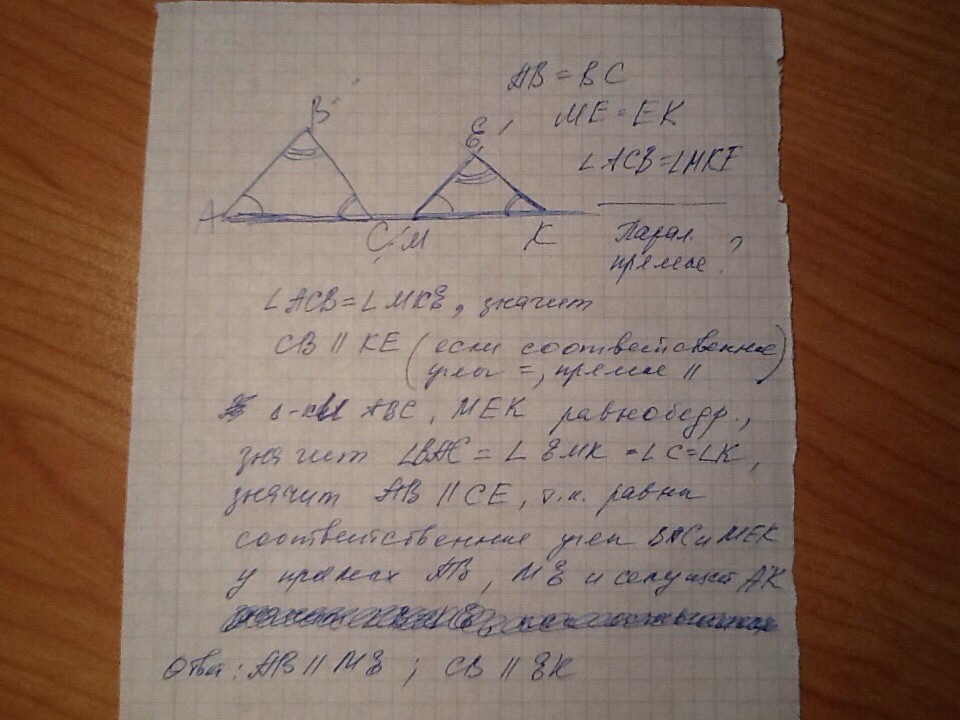 AB = BC
ME = EK
∠ACB = ∠MKE
B
E
A
C
M
K
Парал.
прямые ?
∠ACB = ∠MKE, значит
CB || KE (если соответственные
углы =, прямые ||)
Δ-ки ABC, MEK равнобедр.,
значит ∠BAC = ∠EMK = ∠C = ∠K,
значит AB || CE, т.к. равны
соответственные углы BAC и MEK
у прямых AB, ME и секущей AK
Ответ: AB || ME ; CB || EK